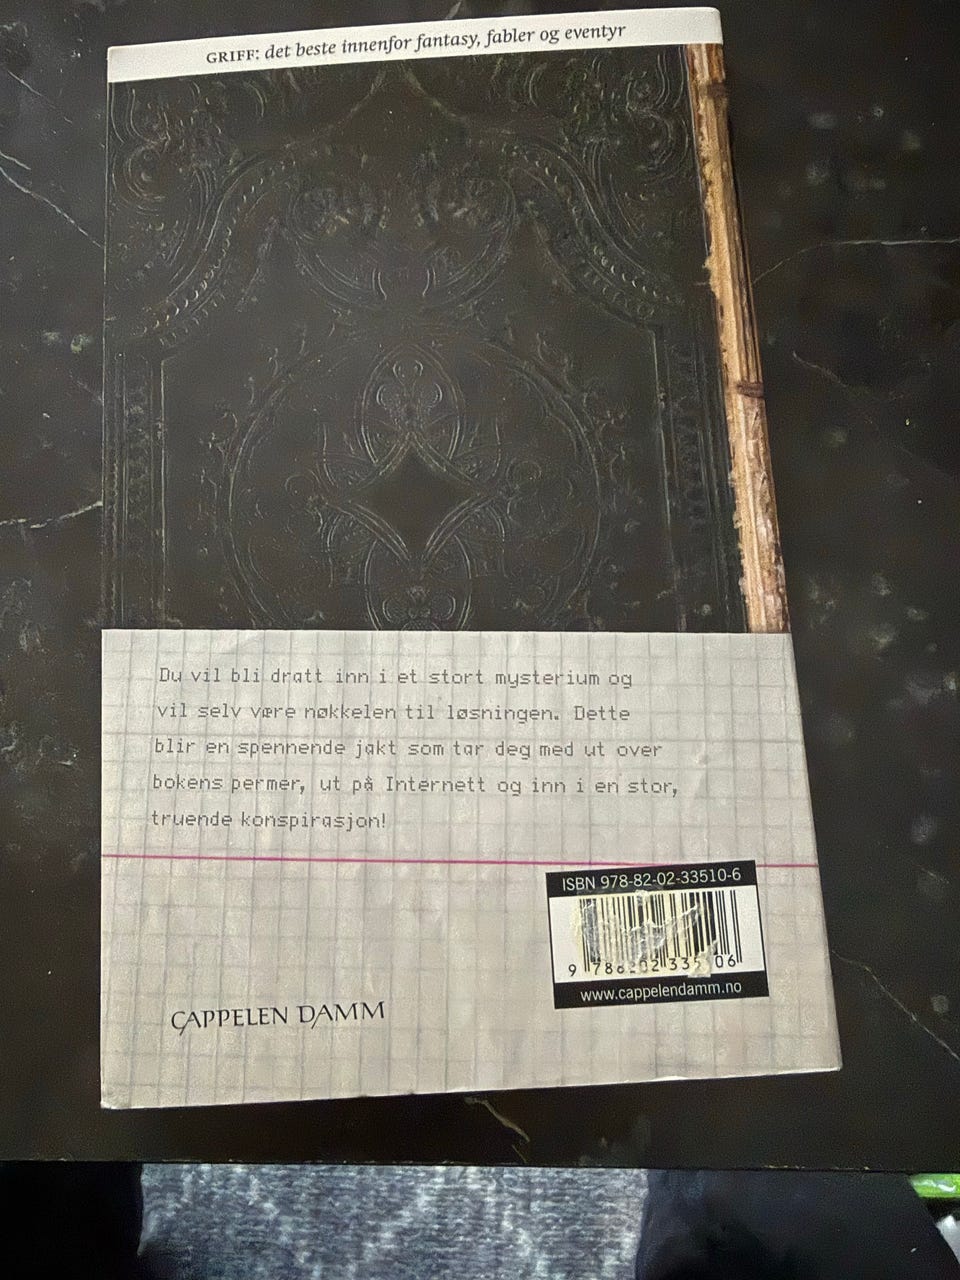 GRIFF: det beste innenfor fantasy, fabler og eventyr
Du vil bli dratt inn i et stort mysterium og
vil selv være nøkkelen til løsningen. Dette
blir en spennende jakt som tar deg med ut over
bokens permer, ut på Internett og inn i en stor,
truende konspirasjon!
ISBN 978-82-02-33510-6
www.cappelendamm.no
CAPPELEN DAMM